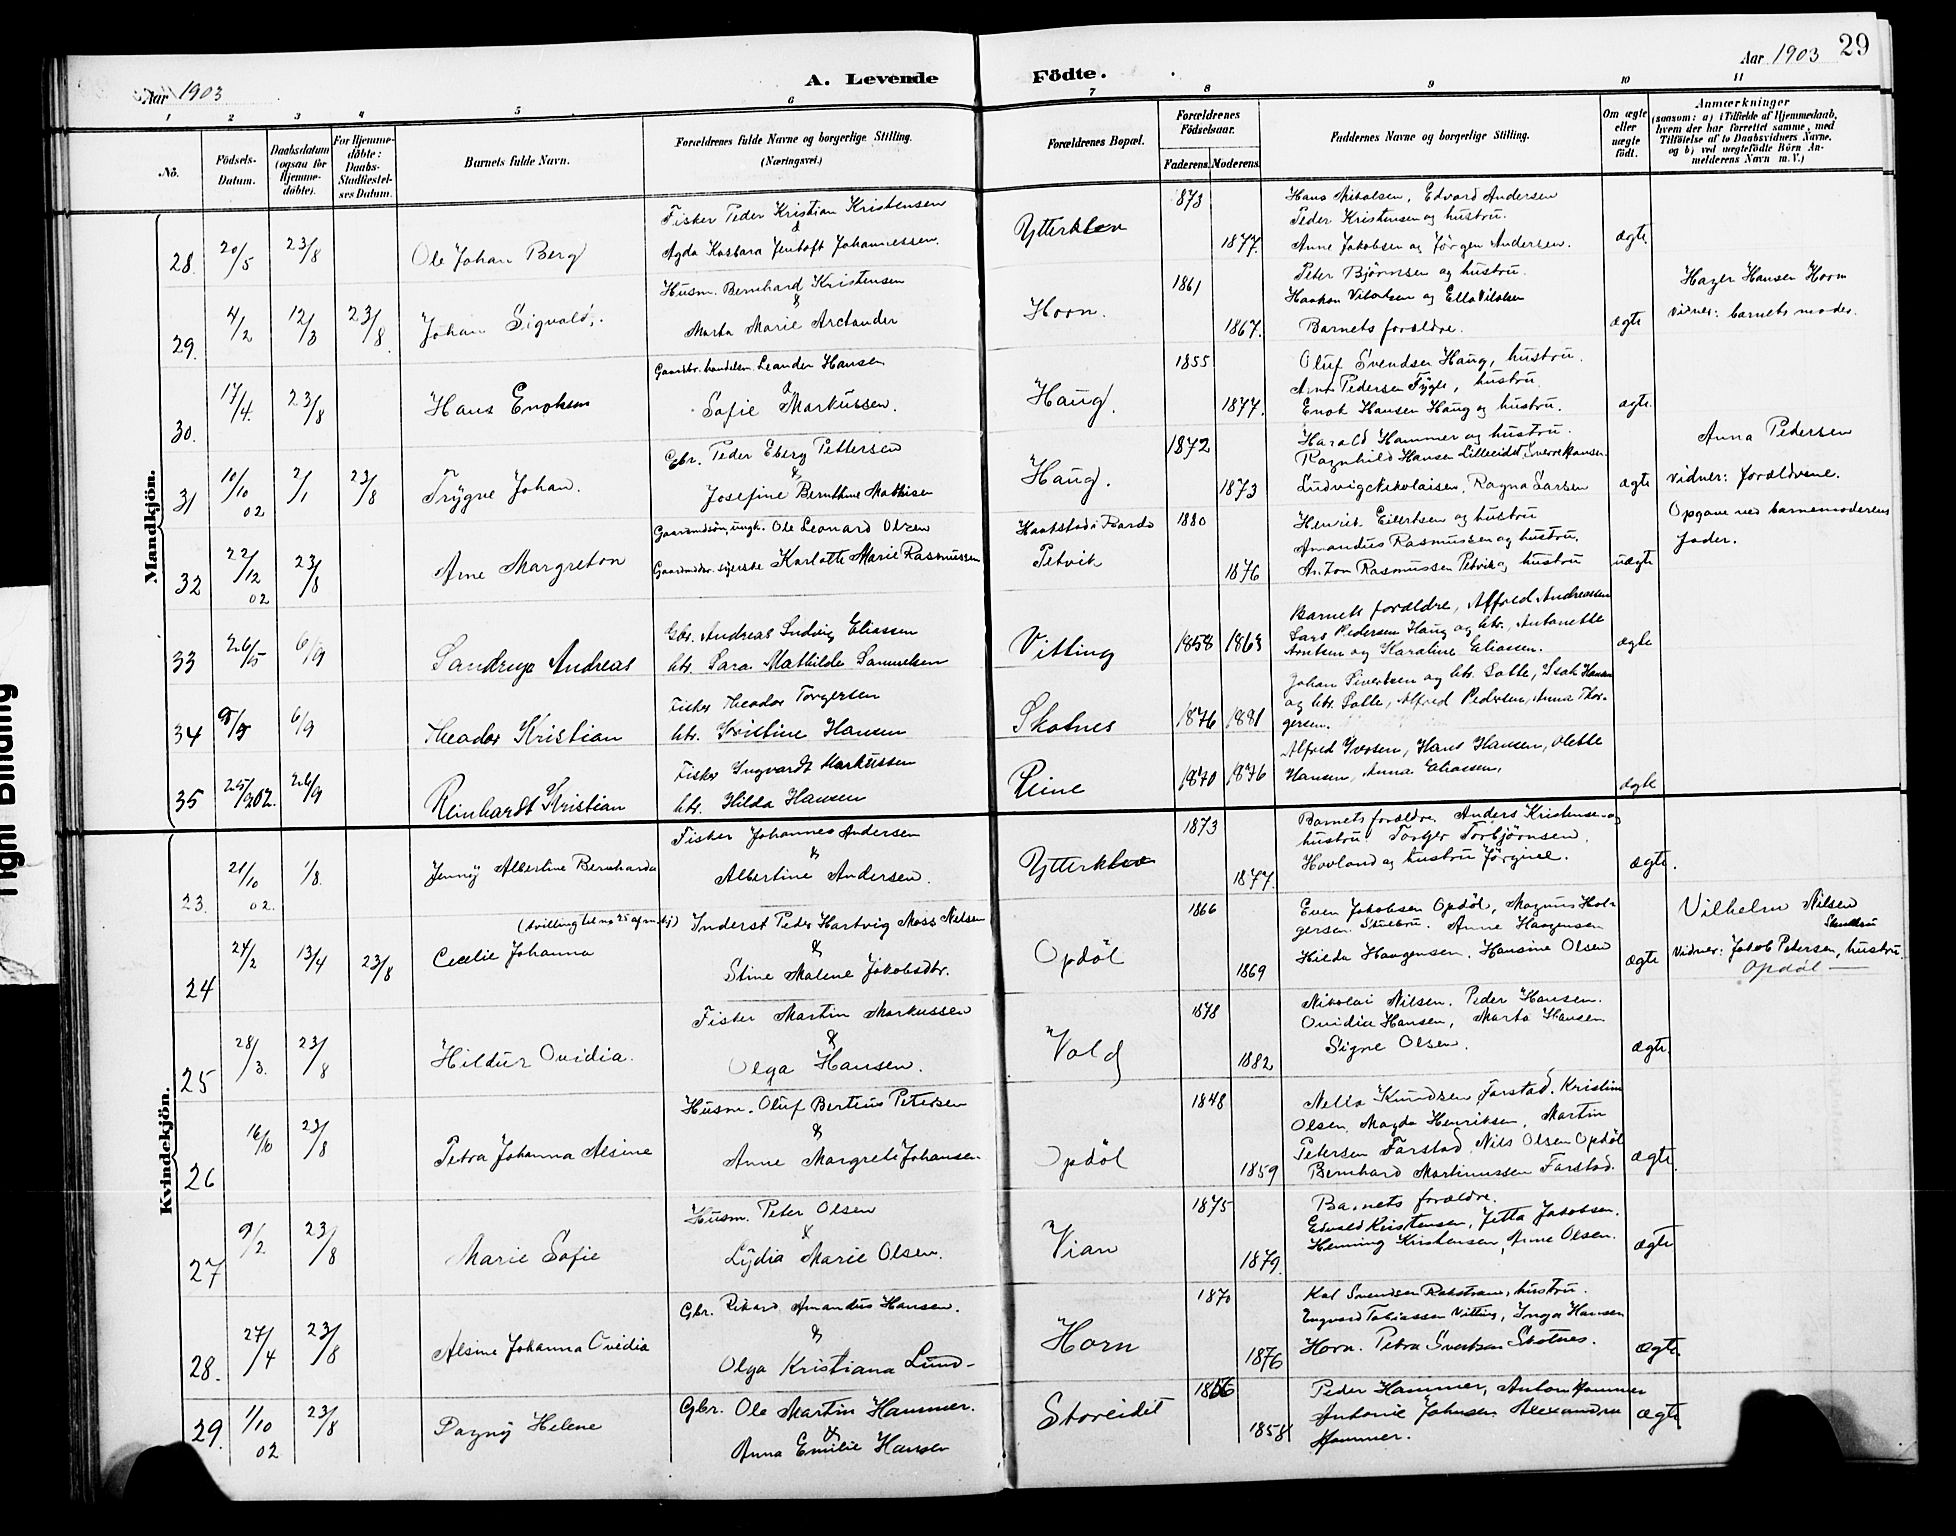 29
Aar 1903
A. Levende Födte.
Aar 1903
1 2 3 4 5 6 7 8 9 10 11
Nö.
Födsels-Datum.
Daabsdatum (ogsaa for Hjemmedöbte).
For Hjemmedöbte: Daabs-Stadfæstelses Datum.
Barnets fulde Navn.
Forældrenes fulde Navne og borgerlige Stilling. (Næringsvei.)
Forældrenes Bopæl.
Forældrenes Födselsaar.
Faderens. Moderens.
Faddernes Navne og borgerlige Stilling.
Om ægte eller uægte födt.
Anmærkninger
(saasom: a) i Tilfælde af Hjemmedaab, hvem der har forrettet samme, med Tilföielse af to Daabsvidners Navne, og b) ved uægtefödte Börn Anmelderens Navn m. V.)
Mandkjön.
28. 20/5 23/8 Ole Johan Berg
Fisker Peder Kristian Kristensen
&
Agda Kasbara Jentoft Johannessen
Ytterklev 1873 1877.
Hans Nikolsen, Edvard Andersen
Peder Kristensen og hustru.
Anne Jakobsen og Jørgen Andersen.
ægte
29. 4/2 12/3 23/8 Johan Sigvald.
Husm. Bernhard Kristensen
&
Marta Marie Arctander
Horn. 1861 1867.
Peter Bjørnsen og hustru.
Haakon Vitalsen og Ella Vitalsen
Barnets forældre.
ægte
Hager Hansen Horn
Vidner: barnets moder.
30. 17/4. 23/8 Hans Enoksen
Gaardbr. handelsm. Leander Hansen
&
Sofie Markussen.
Haug. 1855 1877.
Oluf Svendsen Haug, hustru.
Arnt Pedersen Fygle, hustru
Enok Hansen Haug og hustru.
ægte
31 10/10 02 2/1 23/8 Trygve Johan.
Gbr. Peder Eberg Pettersen
&
Josefine Bernthine Mathisen
Haug. 1872 1873
Harald Hammer og hustru.
Ragnhild Hansen Lilleeidet, Sverre Hansen
Ludvig Nikolaisen, Ragna Larsen
ægte
Anna Pedersen
Vidner: forældrene.
32 22/12 02 23/8 Arne Margreton
Gaardmdsøn, ungk. Ole Leonard Olsen
Karlotte Marie Rasmussen
Petvik 1880 1876
Henrik Eilertsen og hustru
Amandus Rasmussen og hustru.
Anton Rasmussen Petvik og hustru
uægte
Opgave ved barnemoderens
fader.
33 26/5 6/9 Sandrup Andreas
Gbr. Andreas Ludvig Eliassen
htr. Sara Mathilde Samuelsen
Vitting 1858 1863
Barnets forældre, Alfred Andreassen
Lars Pedersen Haug og htr., Antonette
Arntsen og Karoline Eliassen.
ægte
34 6/9 Theodor Kristian
Fisker Theodor Torgersen
htr. Kristine Hansen
Skotnes 1876 1881
Johan Sivertsen og htr. Lotte, Isak Hansen
og htr. Lotte, Alfred Pedersen, Anna Thorgersen.
35 25/9 02. 26/9 Reinhardt Kristian
Fisker Ingvardt Markussen
htr. Hilda Hansen
Reine 1870 1876
Alfred Iversen, Hans Hansen, Olette
Hansen, Anna Eliassen,
ægte
Kvindekjön.
23. 21/10 02. 1/8. Jenny Albertine Bernharda
Fisker Johannes Andersen
&
Albertine Andersen.
Ytterklev 1873 1877.
Barnets forældre. Anders Kristensen og
hustru. Torger Torbjørnsen
Hovland og hustru Jørginel.
ægte.
24 24/2 13/4 23/8 Cecelie Johanna
(tvilling til no 25 af m.kj)
Inderst Peder Hartvig Moss Nielsen
&
Stine Malene Jakobsdtr.
Opdøl 1866 1869
Even Jakobsen Opdøl, Magnus Holgersen Stuebru. Anne Haagensen
Hilda Haagensen, Hansine Olsen
ægte
Vilhelm Nilsen
Vidner: Jakob Petersen, hustru
Opdøl —
25 28/3. 23/8 Hildur Ovidia.
Fisker Martin Markussen
&
Olga Hansen.
Vold 1878 1882
Nikolai Nilsen. Peder Hansen.
Ovidia Hansen, Marta Hansen
Signe Olsen.
ægte.
26 16/6 23/8 Petra Johanna Alsine
Husm. Oluf Bertius Petersen
&
Anne Margrete Johansen
Opdøl 1848 1859
Nella Knudsen Farstad. Kristine
Olsen, Magda Henriksen, Martin
Petersen Farstad, Nils Olsen Opdøl
Bernhard Martinussen Farstad.
ægte.
27 9/2. 23/8 Marie Sofie
Husm. Peter Olsen
&
Lydia Marie Olsen.
Vian 1875 1879.
Barnets forældre.
Edvald Kristensen, Jetta Jakobsen.
Henning Kristensen, Anne Olsen.
ægte
28. 27/4 23/8 Alsine Johanna Ovidia
Gbr. Rikard Amandus Hansen.
&
Olga Kristiana Lund-
Horn 1870 1876
Kal Svendsen Rekstrøm, hustru.
Engvard Tobiassen Vitting, Inga Hansen
Horn. Petra Svertsen Skotnes.
ægte.
29. 1/10 02 23/8 Dagny Helene
Gbr. Ole Martin Hammer.
&
Anna Emilie Hansen
Storeidet 1856 1858
Peder Hammer, Anton Hammer
Antonie Johnsen Alexandra
Hammer.
ægte
Tight Binding